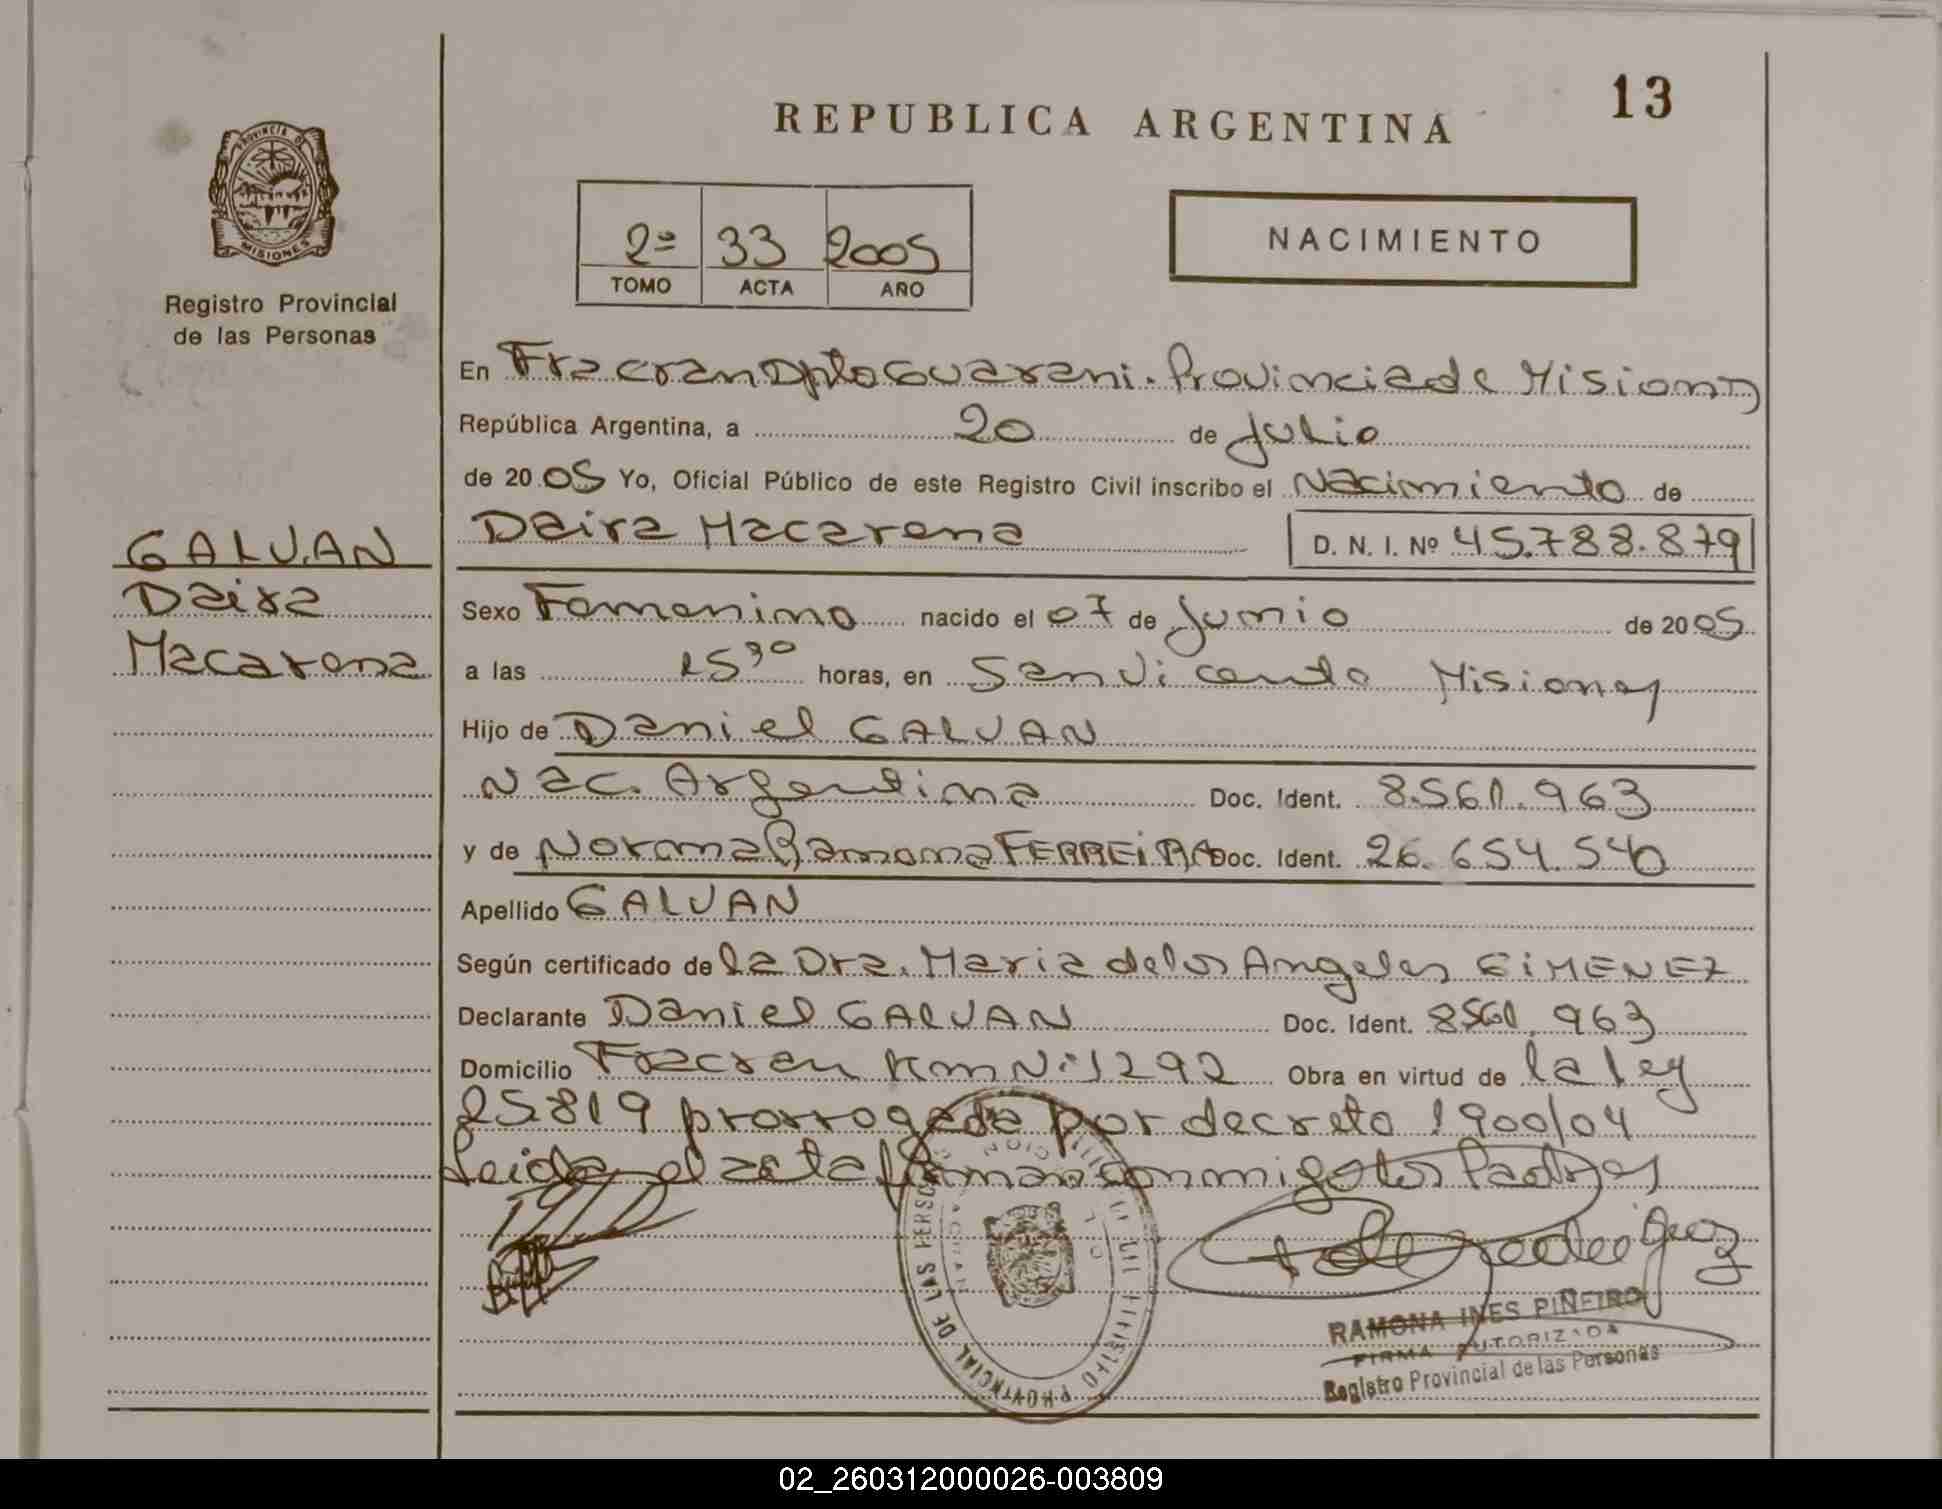 13
REPUBLICA ARGENTINA
PROVINCIA D
MISIONES
Registro Provincial
de las Personas
2º 33 2005
TOMO ACTA AÑO
NACIMIENTO
En Fracran Dpto Guarani. Provincia de Misiones
República Argentina, a 20 de Julio
de 2005 Yo, Oficial Público de este Registro Civil inscribo el Nacimiento de
Daira Macarena D. N. I. Nº 45.788.879
GALVAN
Daira
Macarena
Sexo Femenino nacido el 07 de Junio de 2005
a las 15 30 horas, en San Vicente Misiones
Hijo de Daniel GALVAN
Nac. Argentina Doc. Ident. 8.561.963
y de Norma Ramona FERREiRA Doc. Ident. 26.654.540
Apellido GALVAN
Según certificado de la Dra. Maria de los Angeles GiMENEZ
Declarante Daniel GALVAN Doc. Ident. 8561.963
Domicilio Fracran Km Nº 1292 Obra en virtud de la ley
25.819 prorrogada por decreto 1900/04
Leida el acta firman conmigo los Padres
PROVINCIAL DE LAS PERSO
RAMONA INES PIÑEIRO
FIRMA AUTORIZADA
Registro Provincial de las Personas
02_260312000026-003809